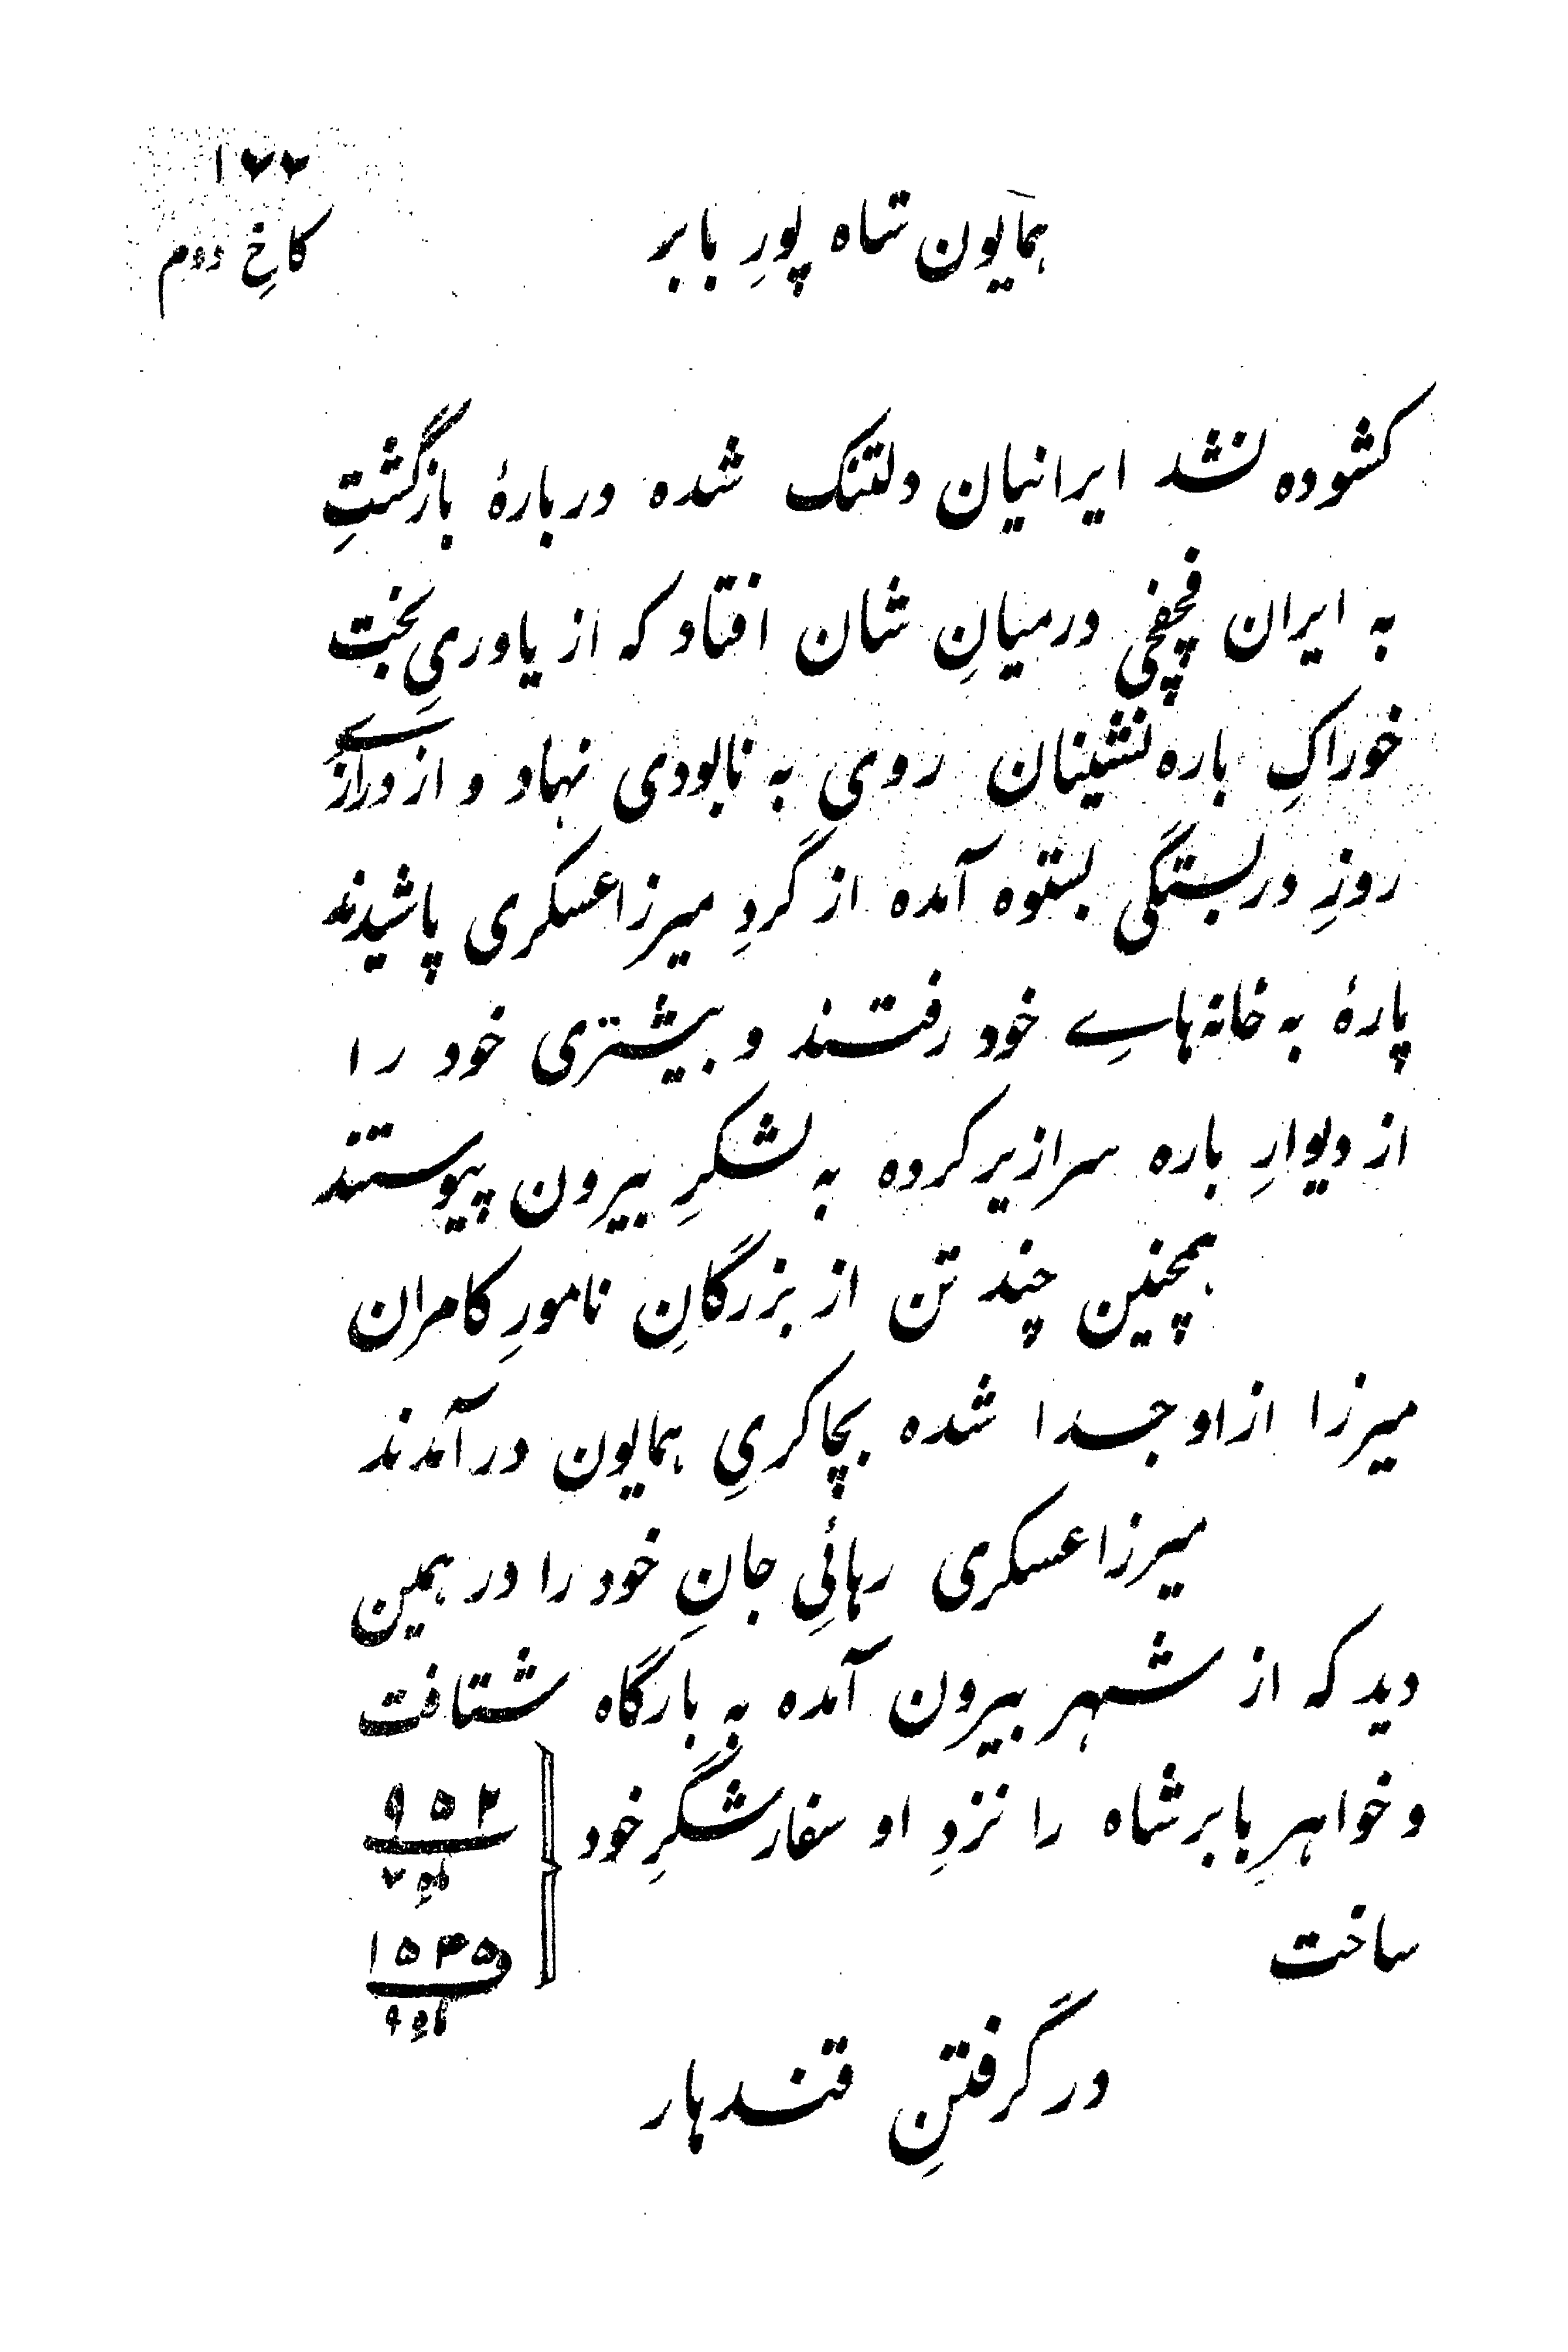 ۱۷۷
کاخِ دوم
همایون شاه پورِ بابر
کشوده نشد ایرانیان دلتنک شده دربارهٔ بازگشتِ
به ایران درمیانِ شان افتاد که از یاوریِ بخت
خوراکِ باره نشینان روی به نابودی نهاد و از درازے
روزِ دربستگی بستوه آمده از گردِ میرزا عسکری پاشیدند
پارهٔ به خانه هاےِ خود رفتند و بیشتری خود را
از دیوارِ باره سرازیر کرده به لشکرِ بیرون پیوستند
همچنین چند تن از بزرگانِ نامورِ کامران
میرزا از او جدا شده بچاکریِ همایون درآمدند
میرزا عسکری رهائیِ جانِ خود را در همین
دید که از شهر بیرون آمده به بارگاه شتافت
و خواهرِ بابر شاه را نزدِ او سفارشگرِ خود
ساخت
۹۵۲
ماهِ ۷
۱۵۴۵
ماهِ ۹
در گرفتنِ قندهار